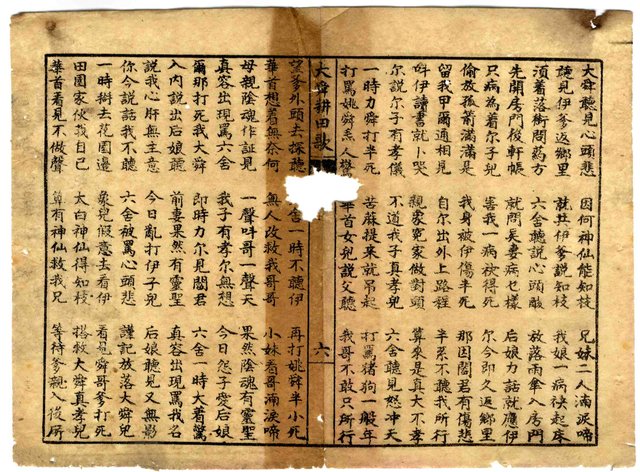 大舜聽見心頭悲 因何神仙能知枝 兄妹二人滿淚啼
聽見伊爹返鄉里 就共伊爹說知枝 我娘一病袂起床
須着落街問药方 六舍聽說心頭酸 放落雨傘入房門
先開房門後軒帳 就問吳妻病乜樣 后娘力話就應伊
只病為着尔子兒 害我一病袂得死 尔今即久返鄉里
偷放孤箭滿滿是 我身被伊傷半死 那因閻君有傷悲
留我甲爾通相見 尔次出外上路程 半系不聽我所行
呌伊讀書就卜哭 親象冤家做對頭 算來是真大不孝
尔說尔子有孝儀 不道我子真孝兒 六舍聽見怒冲天
一時力舜打半死 苦麻提來就吊起 打罵猪狗一般年
打罵姚舜人驚 華首女兒說父聽 我哥不敢只所行
大舜耕田歌 六
望爹外頭去探聽 舍一時不聽伊 再打姚舜半小死
華首想着無奈何 無人改救我哥哥 小妹看哥滿淚啼
母親陰魂作証見 一聲呌哥一聲天 果然陰魂有靈聖
真容出現罵六舍 我子有孝尔無想 今日怨子愛後娘
爾那打死我大舜 即時力尔見閻君 六舍一時大着驚
入內說出后娘聽 前妻果然有靈聖 真容出現罵我名
說我心肝無主意 今日亂打伊子兒 后娘聽見又無影
你今說話我不聽 六舍被罵心頭悲 謹記放落大舜兒
一時掛去花園邊 象兒假意去看伊 看見舜哥爹打死
田園家伙我自已 太白神仙得知枝 搭救大舜真孝兒
華首看見不做聲 算有神仙救我兄 等待爹親入後所